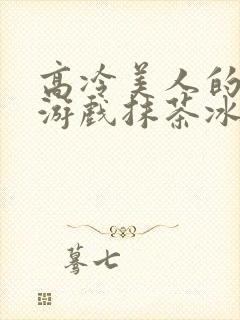 高冷美人的
游戏抹茶冰
蓦七